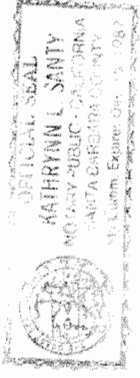 OFFICIAL SEAL
KATHRYNN L. SANTY
NOTARY PUBLIC - CALIFORNIA
SANTA BARBARA COUNTY
Comm. Expires